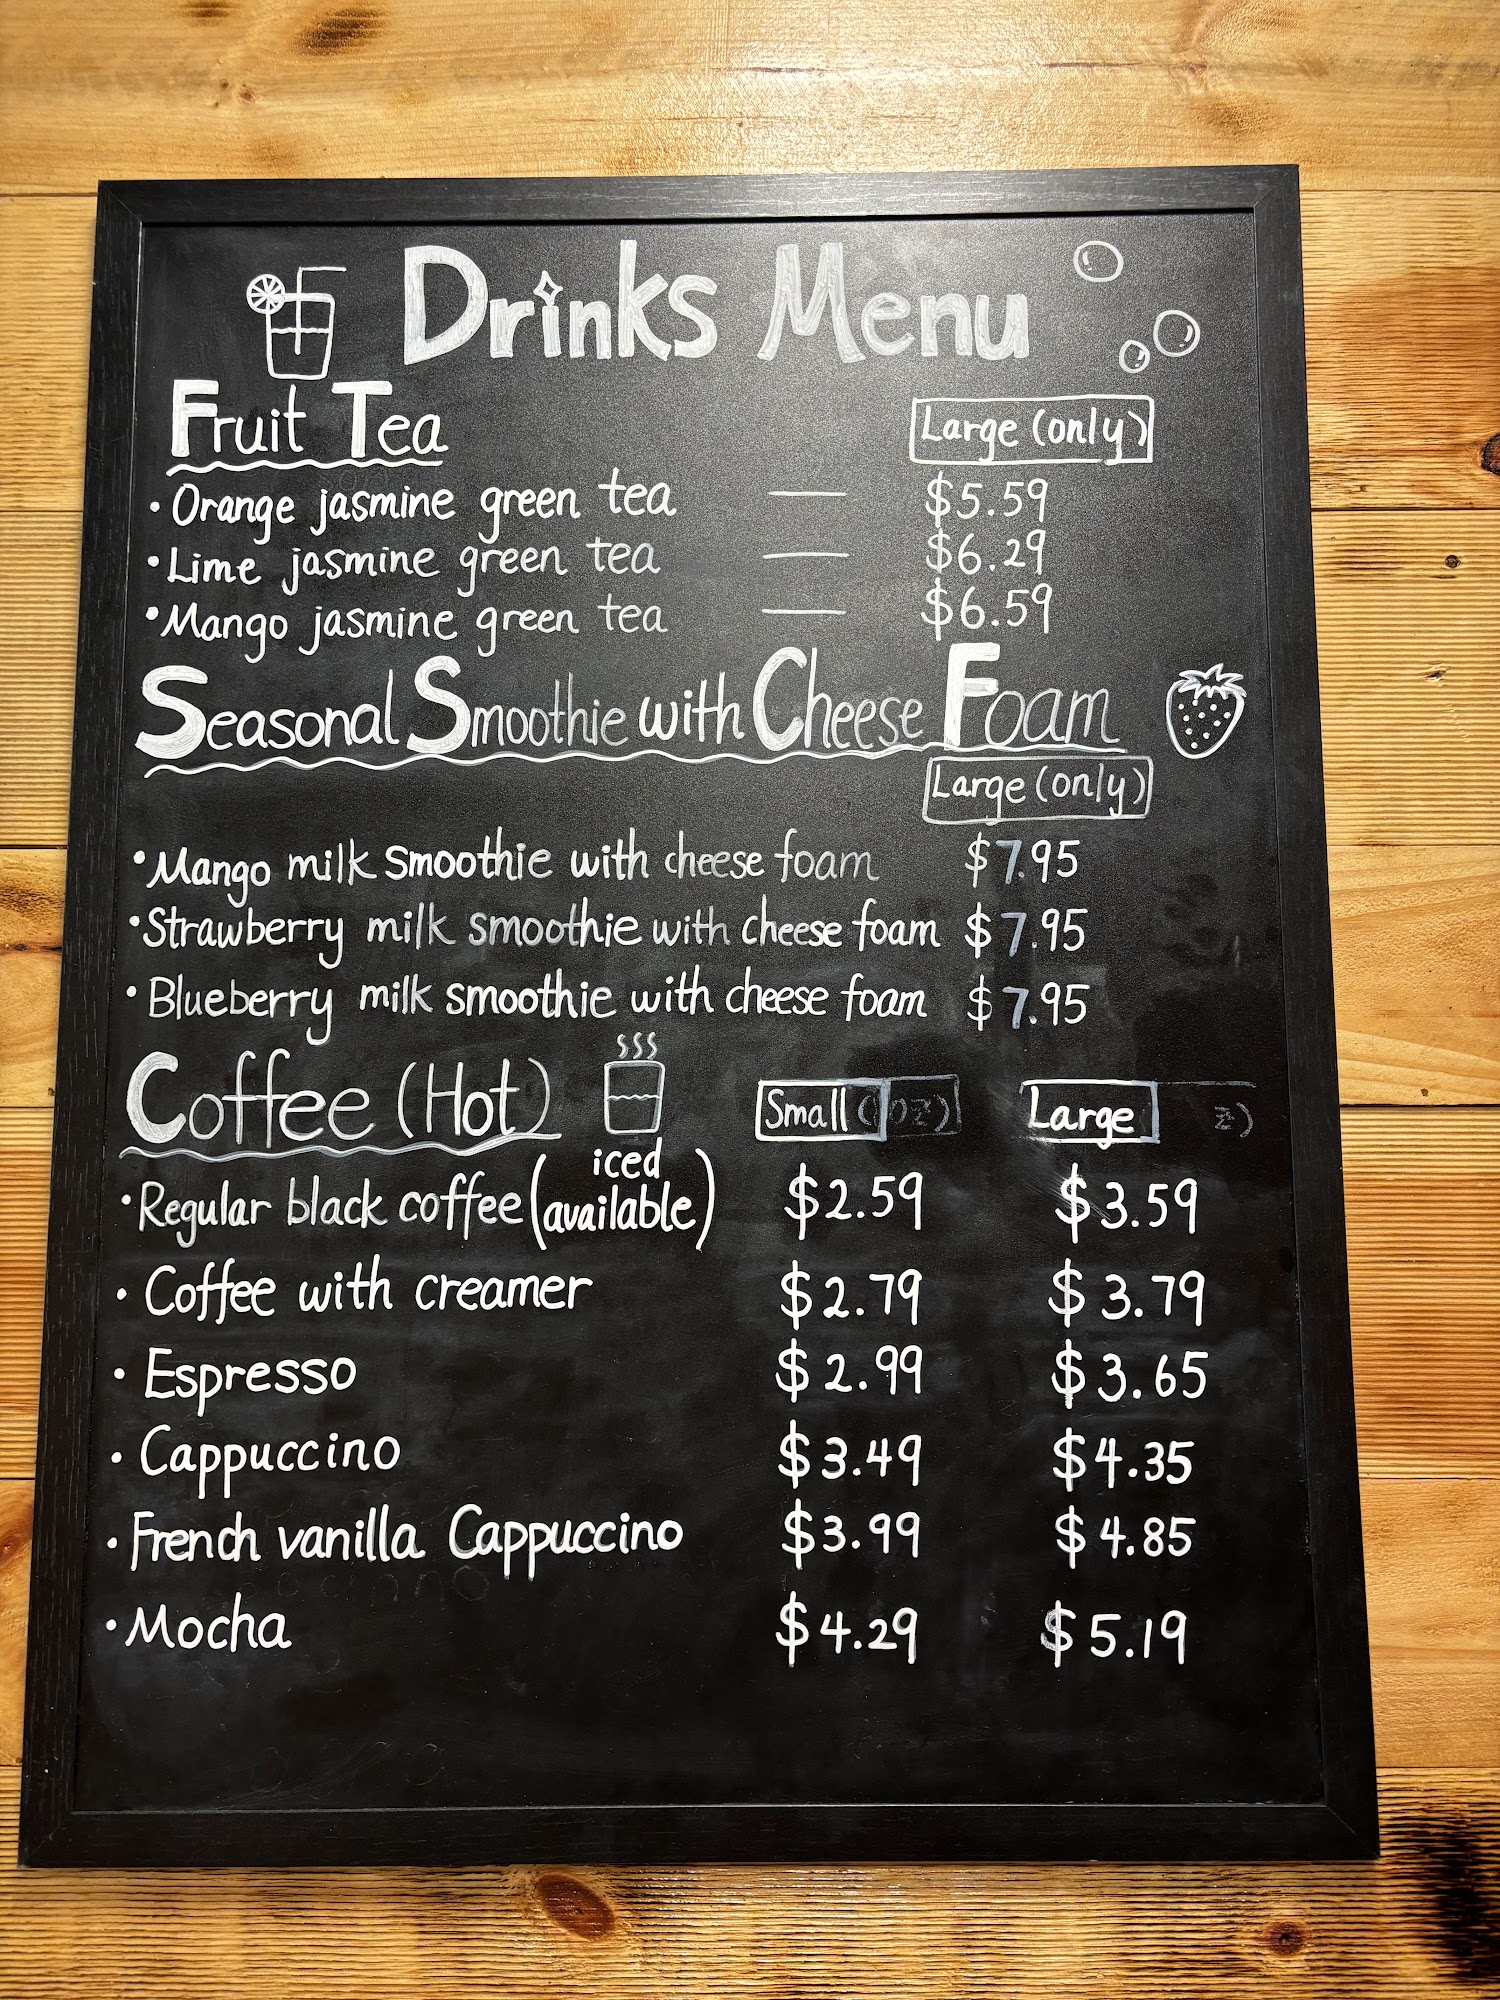 Drinks Menu
Fruit Tea
Large (only)
• Orange jasmine green tea — $5.59
• Lime jasmine green tea — $6.29
• Mango jasmine green tea — $6.59
Seasonal Smoothie with Cheese Foam
Large (only)
• Mango milk smoothie with cheese foam $7.95
• Strawberry milk smoothie with cheese foam $7.95
• Blueberry milk smoothie with cheese foam $7.95
Coffee (Hot) Small Large
• Regular black coffee (iced available) $2.59 $3.59
• Coffee with creamer $2.79 $3.79
• Espresso $2.99 $3.65
• Cappuccino $3.49 $4.35
• French vanilla Cappuccino $3.99 $4.85
• Mocha $4.29 $5.19